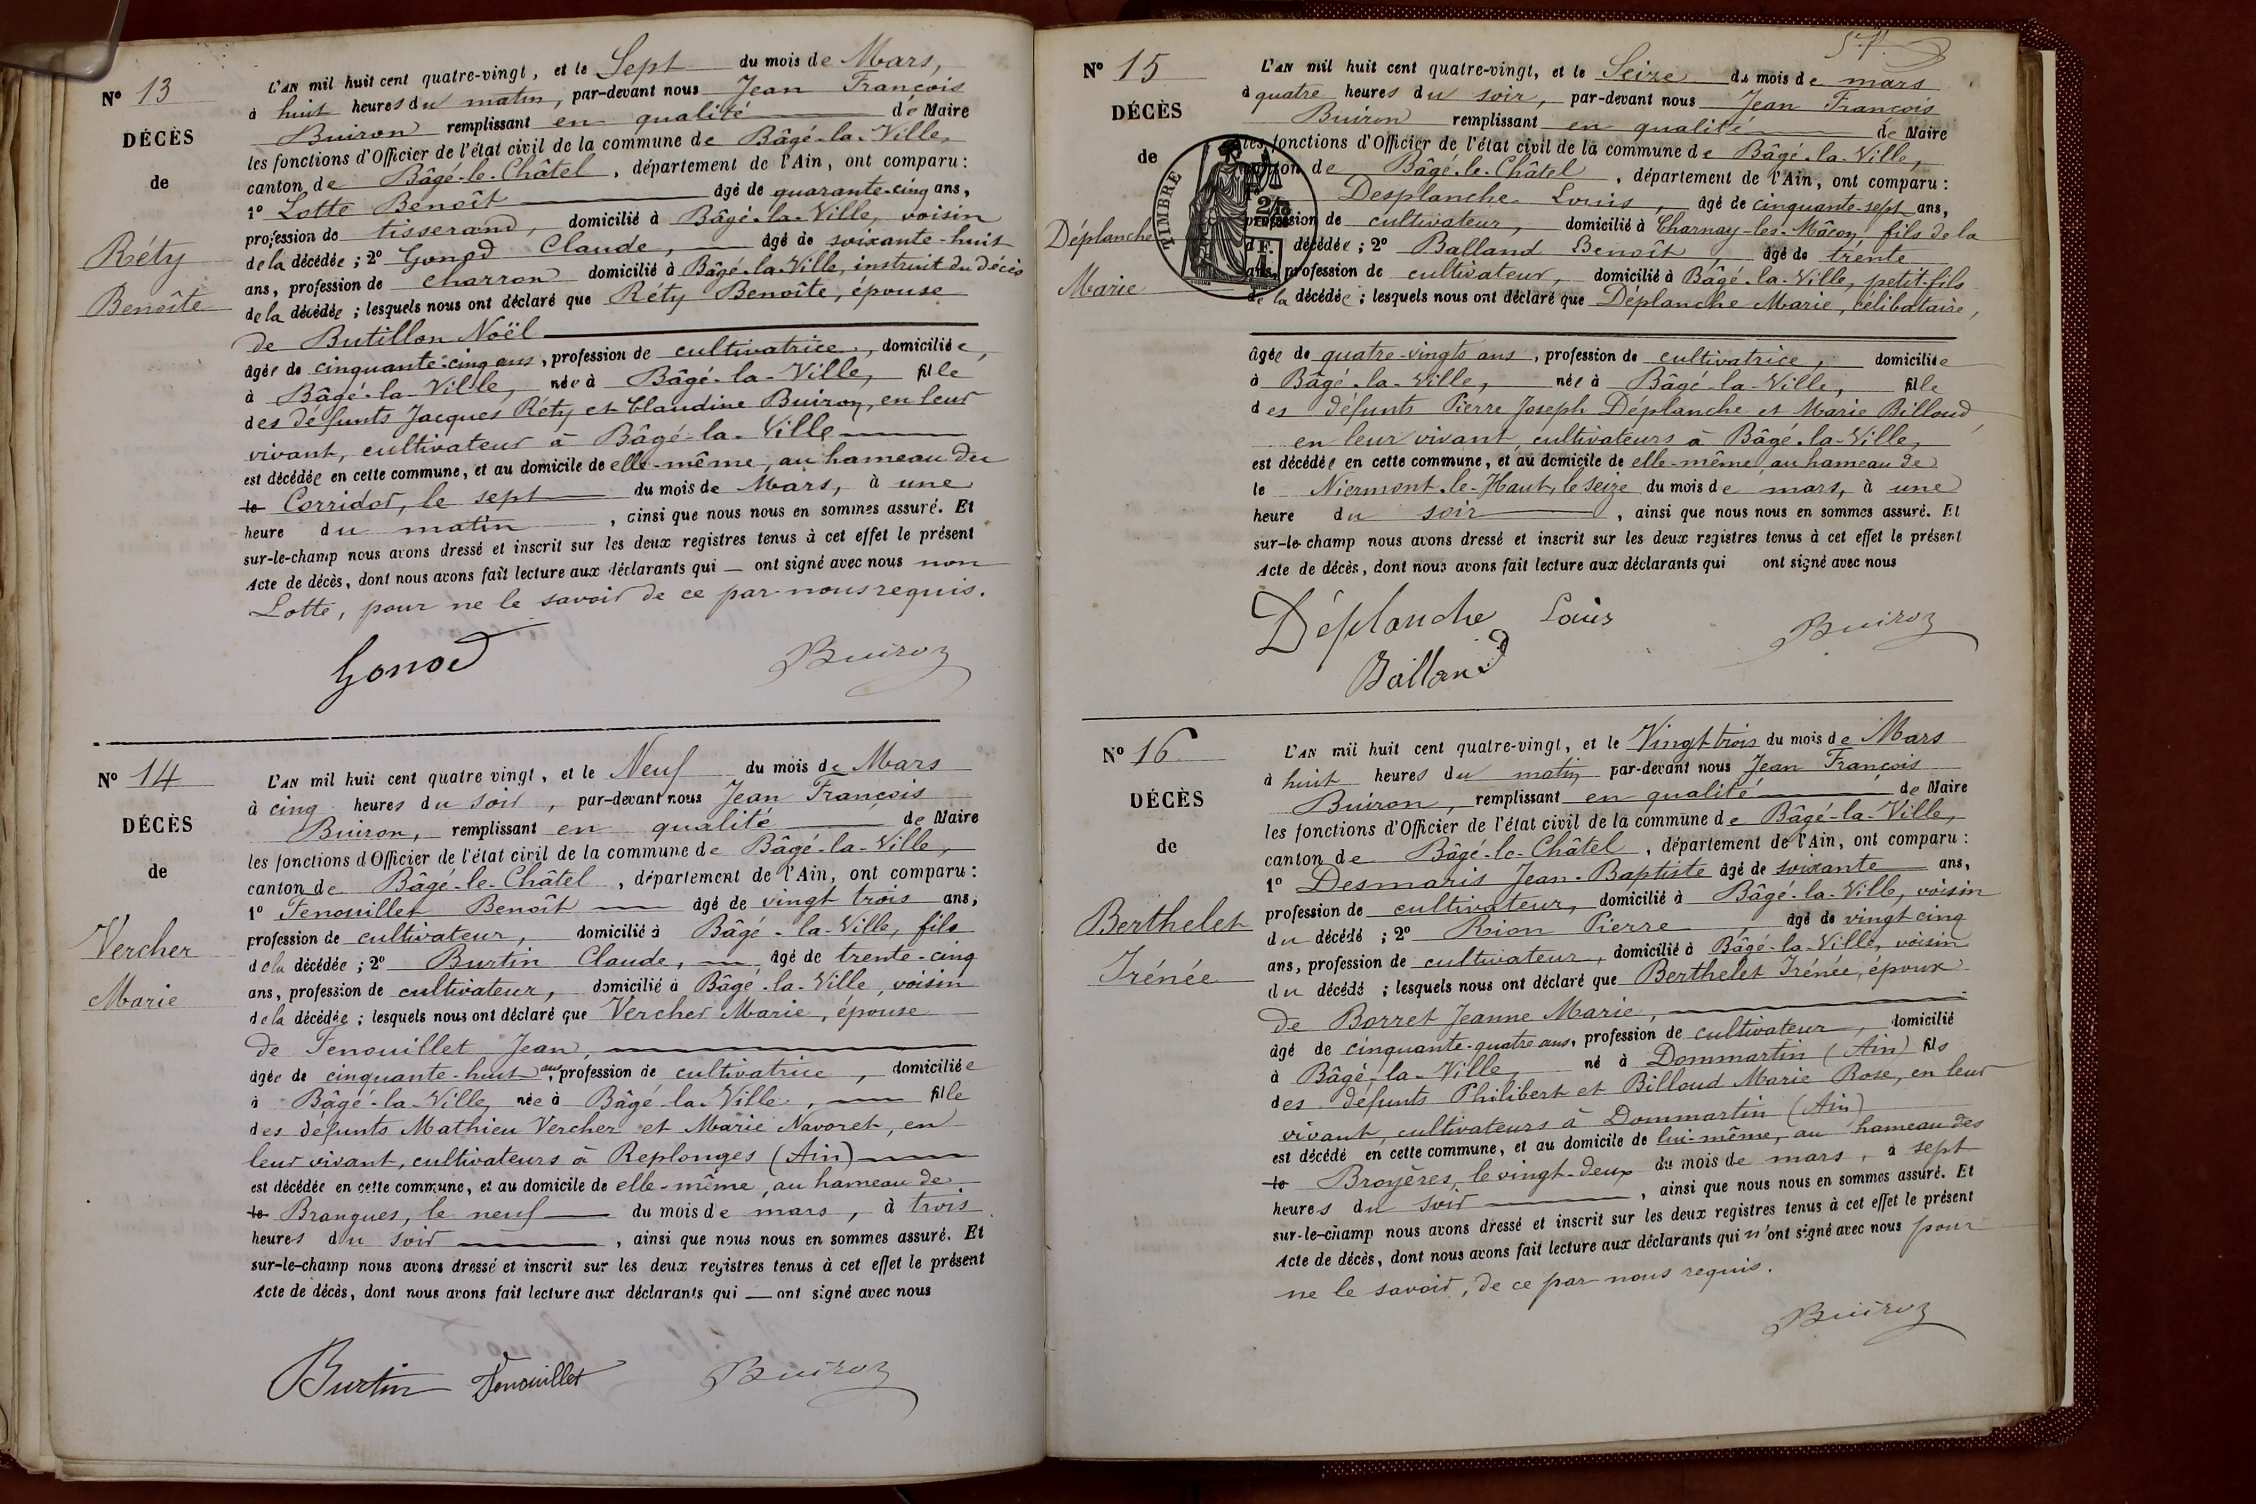 N° 13
DÉCÈS
de
Réty
Benoîte
L'AN mil huit cent quatre-vingt, et le Sept du mois de Mars,
à huit heures du matin, par-devant nous Jean François
Buiron remplissant en qualité de Maire
les fonctions d'Officier de l'état civil de la commune de Bâgé-la-Ville,
canton de Bâgé-le-Châtel, département de l'Ain, ont comparu :
1° Lotte Benoît âgé de quarante-cinq ans,
profession de tisserand, domicilié à Bâgé-la-Ville, voisin
de la décédée ; 2° Gonod Claude, âgé de soixante-huit
ans, profession de charron domicilié à Bâgé-la-Ville, instruit du décès
de la décédée ; lesquels nous ont déclaré que Réty Benoîte, épouse
de Butillon Noël
âgée de cinquante-cinq ans, profession de cultivatrice, domiciliée
à Bâgé-la-Ville, née à Bâgé-la-Ville, fille
des défunts Jacques Réty et Claudine Buiron, en leur
vivant, cultivateur à Bâgé-la-Ville
est décédée en cette commune, et au domicile de elle-même, au hameau du
le Corridor, le sept du mois de Mars, à une
heure du matin, ainsi que nous nous en sommes assuré. Et
sur-le-champ nous avons dressé et inscrit sur les deux registres tenus à cet effet le présent
Acte de décès, dont nous avons fait lecture aux déclarants qui ont signé avec nous non
Lotte, pour ne le savoir de ce par nous requis.
Gonod Buiron
N° 14
DÉCÈS
de
Vercher
Marie
L'AN mil huit cent quatre vingt, et le Neuf du mois de Mars
à cinq heures du soir, par-devant nous Jean François
Buiron, remplissant en qualité de Maire
les fonctions d'Officier de l'état civil de la commune de Bâgé-la-Ville,
canton de Bâgé-le-Châtel, département de l'Ain, ont comparu :
1° Fenouillet Benoît âgé de vingt trois ans,
profession de cultivateur, domicilié à Bâgé-la-Ville, fils
de la décédée ; 2° Burtin Claude, âgé de trente-cinq
ans, profession de cultivateur, domicilié à Bâgé-la-Ville, voisin
de la décédée ; lesquels nous ont déclaré que Vercher Marie, épouse
de Fenouillet Jean,
âgée de cinquante-huit ans, profession de cultivatrice, domiciliée
à Bâgé-la-Ville, née à Bâgé la-Ville, fille
des défunts Mathieu Vercher et Marie Navoret, en
leur vivant, cultivateurs à Replonges (Ain)
est décédée en cette commune, et au domicile de elle-même, au hameau de
le Brangues, le neuf du mois de mars, à trois
heures du soir, ainsi que nous nous en sommes assuré. Et
sur-le-champ nous avons dressé et inscrit sur les deux registres tenus à cet effet le présent
Acte de décès, dont nous avons fait lecture aux déclarants qui ont signé avec nous
Burtin Fenouillet Buiron
N° 15
DÉCÈS
de
Déplanche
Marie
TIMBRE
L'AN mil huit cent quatre-vingt, et le Seize du mois de mars
à quatre heures du soir, par-devant nous Jean François
Buiron remplissant en qualité de Maire
les fonctions d'Officier de l'état civil de la commune de Bâgé-la-Ville,
canton de Bâgé-le-Châtel, département de l'Ain, ont comparu :
Desplanche Louis, âgé de cinquante-sept ans,
profession de cultivateur, domicilié à Charnay-les-Mâcon, fils de la
décédée ; 2° Balland Benoît, âgé de trente
ans, profession de cultivateur, domicilié à Bâgé-la-Ville, petit-fils
de la décédée ; lesquels nous ont déclaré que Déplanche Marie, célibataire,
âgée de quatre-vingts ans, profession de cultivatrice, domiciliée
à Bâgé-la-Ville, née à Bâgé-la-Ville, fille
des défunts Pierre Joseph Déplanche et Marie Billoud,
en leur vivant, cultivateurs à Bâgé-la-Ville,
est décédée en cette commune, et au domicile de elle-même, au hameau de
le Niermont-le-Haut, le seize du mois de mars, à une
heure du soir, ainsi que nous nous en sommes assuré. Et
sur-le-champ nous avons dressé et inscrit sur les deux registres tenus à cet effet le présent
Acte de décès, dont nous avons fait lecture aux déclarants qui ont signé avec nous
Déplanche Louis Buiron
Balland
N° 16
DÉCÈS
de
Berthelet
Irénée
L'AN mil huit cent quatre-vingt, et le Vingt trois du mois de Mars
à huit heures du matin par-devant nous Jean François
Buiron, remplissant en qualité de Maire
les fonctions d'Officier de l'état civil de la commune de Bâgé-la-Ville,
canton de Bâgé-le-Châtel, département de l'Ain, ont comparu :
1° Desmaris Jean-Baptiste âgé de soixante ans,
profession de cultivateur, domicilié à Bâgé-la-Ville, voisin
du décédé ; 2° Rion Pierre, âgé de vingt cinq
ans, profession de cultivateur, domicilié à Bâgé-la-Ville, voisin
du décédé ; lesquels nous ont déclaré que Berthelet Irénée, époux
de Borret Jeanne Marie,
âgé de cinquante-quatre ans, profession de cultivateur, domicilié
à Bâgé-la-Ville, né à Dommartin (Ain) fils
des défunts Philibert et Billoud Marie Rose, en leur
vivant, cultivateurs à Dommartin (Ain)
est décédé en cette commune, et au domicile de lui-même, au hameau des
le Broyères, le vingt-deux du mois de mars, à sept
heures du soir, ainsi que nous nous en sommes assuré. Et
sur-le-champ nous avons dressé et inscrit sur les deux registres tenus à cet effet le présent
Acte de décès, dont nous avons fait lecture aux déclarants qui n'ont signé avec nous pour
ne le savoir, de ce par nous requis.
Buiron